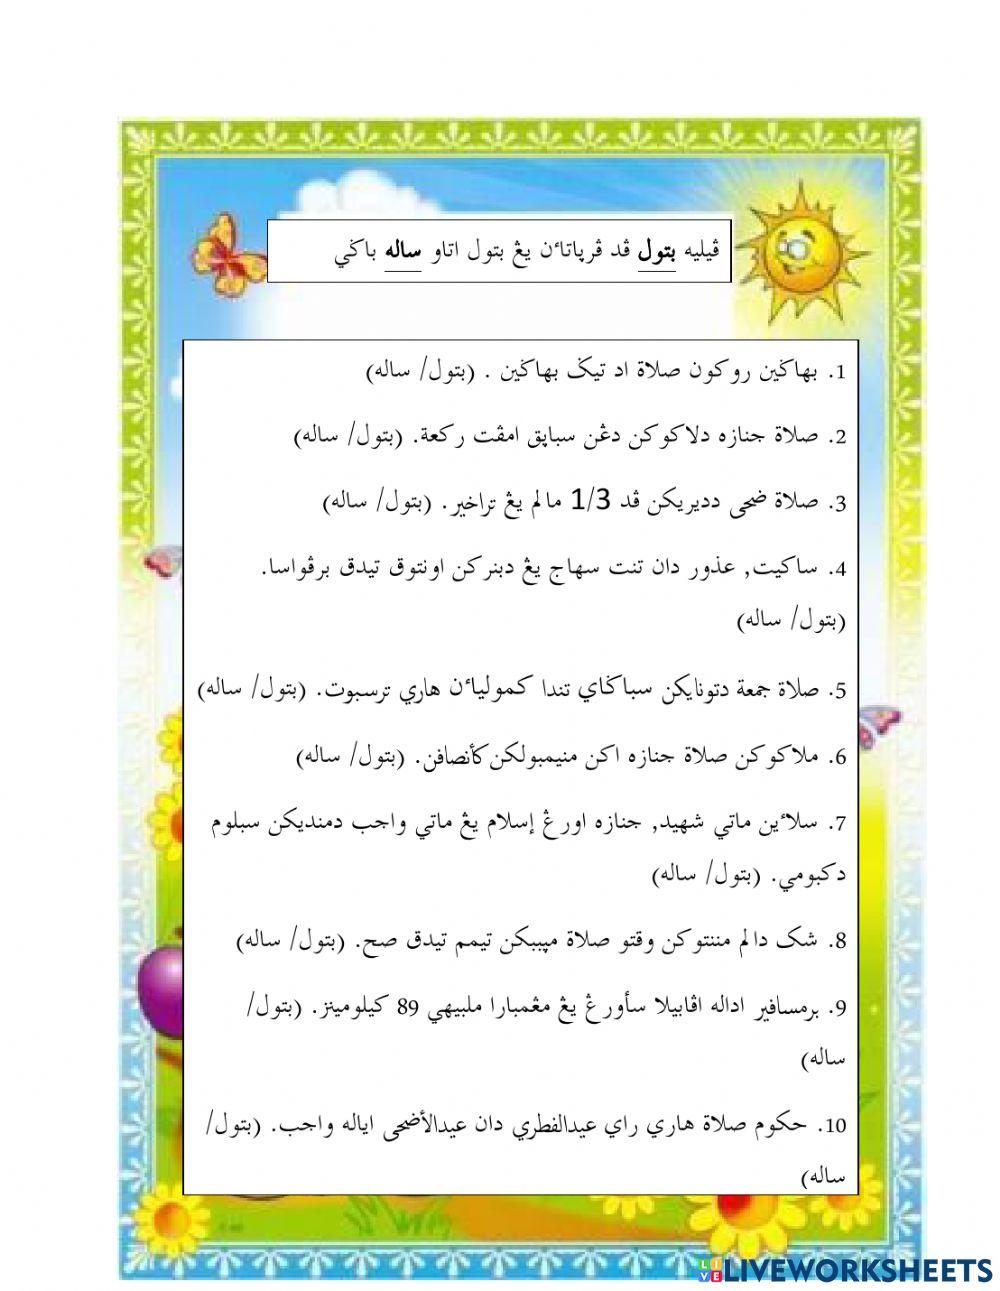 ڤيليه بتول ڤد ڤرڽاتاءن يڠ بتول اتاو ساله باݢي
1. بهاݢين روكون صلاة اد تيݢ بهاݢين . (بتول/ ساله)
2. صلاة جنازه دلاكوكن دڠن سباڽق امڤت ركعة. (بتول/ ساله)
3. صلاة ضحى دديريكن ڤد 1/3 مالم يڠ تراخير. (بتول/ ساله)
4. ساكيت, عذور دان تنت سهاج يڠ دبنركن اونتوق تيدق برڤواسا.
(بتول/ ساله)
5. صلاة جمعة دتونايكن سباݢاي تندا كمولياءن هاري ترسبوت. (بتول/ ساله)
6. ملاكوكن صلاة جنازه اكن منيمبولكن كأنصافن. (بتول/ ساله)
7. سلاءين ماتي شهيد, جنازه اورڠ إسلام يڠ ماتي واجب دمنديكن سبلوم
دكبومي. (بتول/ ساله)
8. شک دالم مننتوكن وقتو صلاة مڽببكن تيمم تيدق صح. (بتول/ ساله)
9. برمسافير اداله اڤابيلا سأورڠ يڠ مڠمبارا ملبيهي 89 كيلوميتر. (بتول/
ساله)
10. حكوم صلاة هاري راي عيدالفطري دان عيدالأضحى اياله واجب. (بتول/
ساله)
LIVEWORKSHEETS